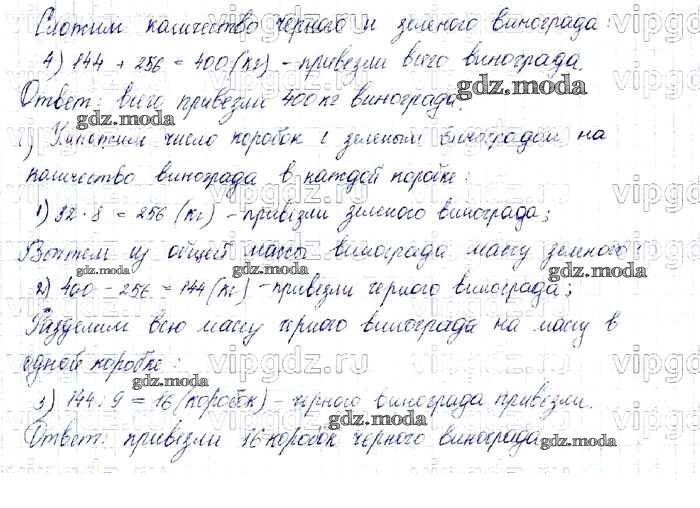 Сложим количество черного и зеленого винограда:
4) 144 + 256 = 400 (кг) - привезли всего винограда.
Ответ: всего привезли 400 кг винограда.
) Умножим число коробок с зеленым виноградом на
количество винограда в каждой коробке:
1) 32 · 8 = 256 (кг) - привезли зеленого винограда;
Вычтем из общей массы винограда массу зеленого:
2) 400 - 256 = 144 (кг) - привезли черного винограда;
Разделим всю массу черного винограда на массу в
одной коробке:
3) 144 : 9 = 16 (коробок) - черного винограда привезли.
Ответ: привезли 16 коробок черного винограда
gdz.moda
vipgdz.ru